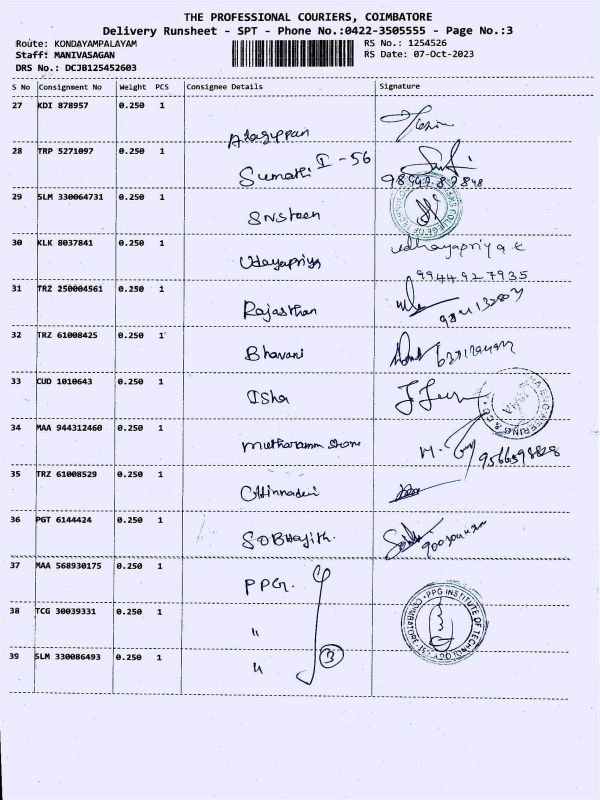 THE PROFESSIONAL COURIERS, COIMBATORE
Delivery Runsheet - SPT - Phone No.:0422-3505555 - Page No.:3
Route: KONDAYAMPALAYAM
RS No.: 1254526
Staff: MANIVASAGAN
RS Date: 07-Oct-2023
DRS No.: DCJB125452603
S No Consignment No Weight PCS Consignee Details Signature
27 KDI 878957 0.250 1
Alagappan
28 TRP 5271097 0.250 1
Sumathi I-56
29 SLM 330064731 0.250 1
30 KLK 8037841 0.250 1 udhayapriya.k
Udayapriya
9944927935
31 TRZ 250004561 0.250 1
Rajasthan
32 TRZ 61008425 0.250 1
Bhavani
33 CUD 1010643 0.250 1
Isha
34 MAA 944312460 0.250 1
35 TRZ 61008529 0.250 1
Chinnadevi
36 PGT 6144424 0.250 1
37 MAA 568930175 0.250 1
PPG.
PPG INSTITUTE OF TECHNOLOGY
38 TCG 30039331 0.250 1
"
39 SLM 330086493 0.250 1
"
3